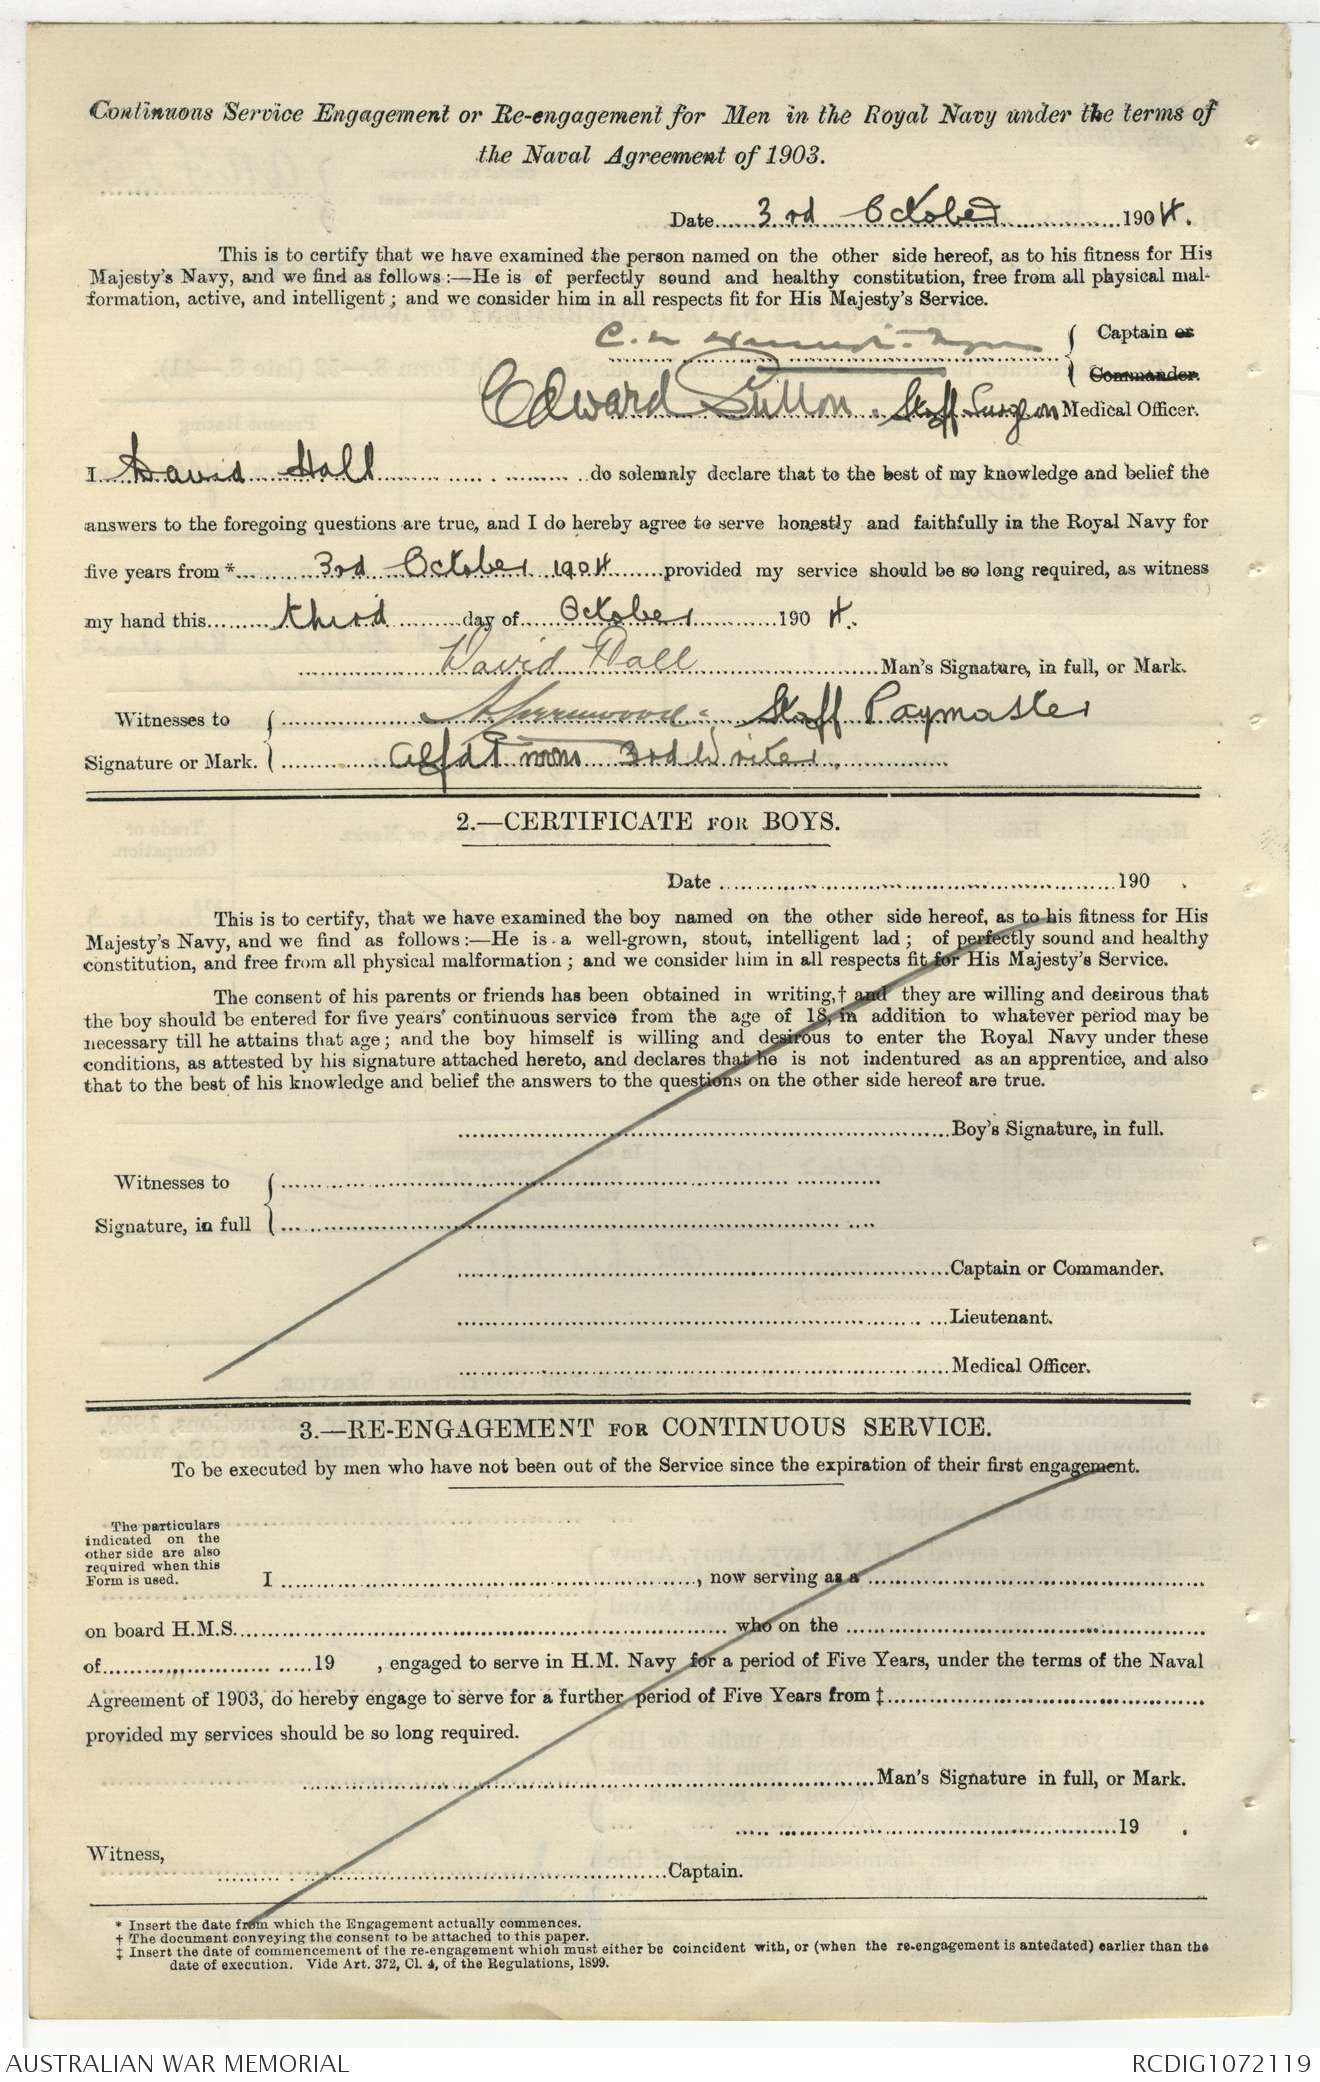 Continuous Service Engagement or Re-engagement for Men in the Royal Navy under the terms of
the Naval Agreement of 1903.
Date 3rd October 1904.
This is to certify that we have examined the person named on the other side hereof, as to his fitness for His
Majesty's Navy, and we find as follows:—He is of perfectly sound and healthy constitution, free from all physical mal-
formation, active, and intelligent; and we consider him in all respects fit for His Majesty's Service.
Captain or
Commander.
Edward Sutton. Staff Surgeon Medical Officer.
I David Hall do solemnly declare that to the best of my knowledge and belief the
answers to the foregoing questions are true, and I do hereby agree to serve honestly and faithfully in the Royal Navy for
five years from * 3rd October 1904 provided my service should be so long required, as witness
my hand this third day of October 1904.
David Hall Man's Signature, in full, or Mark.
Witnesses to Staff Paymaster
Signature or Mark. 3rd Writer.
2.—CERTIFICATE FOR BOYS.
Date 190 .
This is to certify, that we have examined the boy named on the other side hereof, as to his fitness for His
Majesty's Navy, and we find as follows:—He is a well-grown, stout, intelligent lad; of perfectly sound and healthy
constitution, and free from all physical malformation; and we consider him in all respects fit for His Majesty's Service.
The consent of his parents or friends has been obtained in writing,† and they are willing and desirous that
the boy should be entered for five years' continuous service from the age of 18, in addition to whatever period may be
necessary till he attains that age; and the boy himself is willing and desirous to enter the Royal Navy under these
conditions, as attested by his signature attached hereto, and declares that he is not indentured as an apprentice, and also
that to the best of his knowledge and belief the answers to the questions on the other side hereof are true.
Boy's Signature, in full.
Witnesses to
Signature, in full
Captain or Commander.
Lieutenant.
Medical Officer.
3.—RE-ENGAGEMENT FOR CONTINUOUS SERVICE.
To be executed by men who have not been out of the Service since the expiration of their first engagement.
The particulars
indicated on the
other side are also
required when this
Form is used.
I , now serving as a
on board H.M.S. who on the
of 19 , engaged to serve in H.M. Navy for a period of Five Years, under the terms of the Naval
Agreement of 1903, do hereby engage to serve for a further period of Five Years from ‡
provided my services should be so long required.
Man's Signature in full, or Mark.
19 .
Witness,
Captain.
* Insert the date from which the Engagement actually commences.
† The document conveying the consent to be attached to this paper.
‡ Insert the date of commencement of the re-engagement which must either be coincident with, or (when the re-engagement is antedated) earlier than the
date of execution. Vide Art. 372, Cl. 4, of the Regulations, 1899.
AUSTRALIAN WAR MEMORIAL
RCDIG1072119